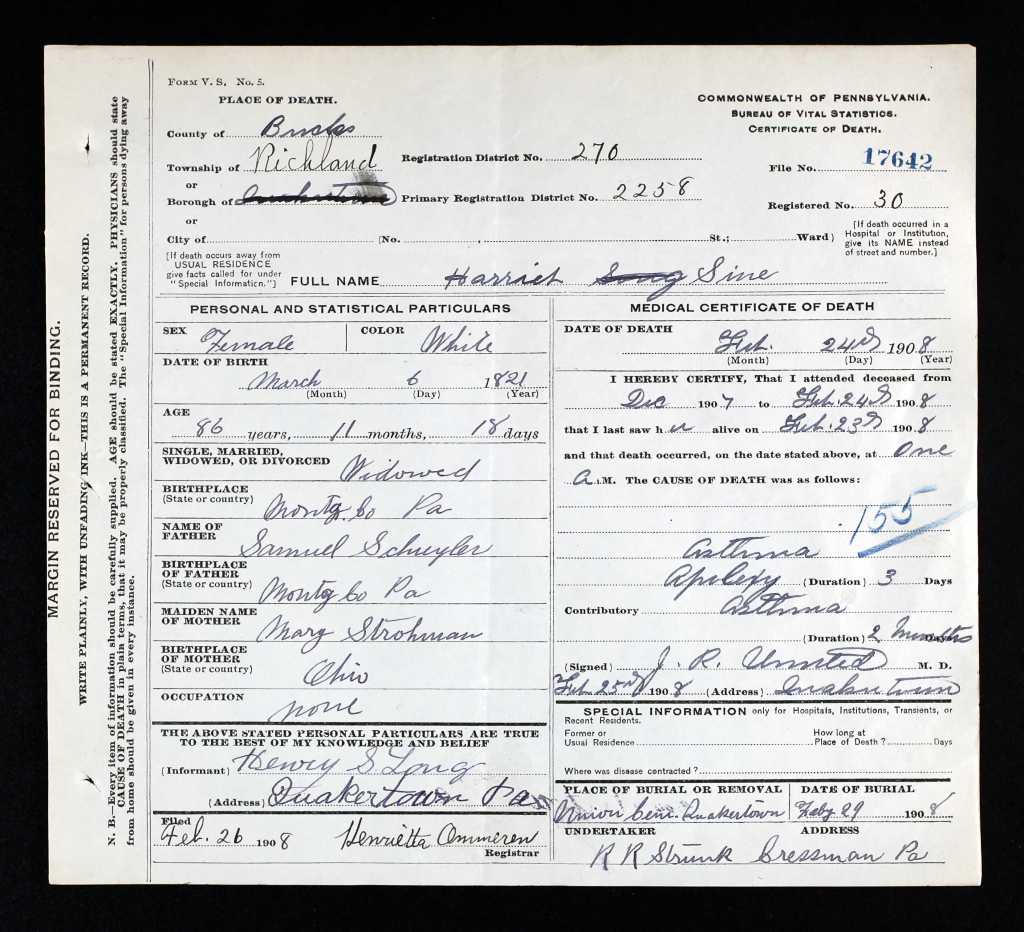 MARGIN RESERVED FOR BINDING.
WRITE PLAINLY, WITH UNFADING INK—THIS IS A PERMANENT RECORD.
N. B.—Every item of information should be carefully supplied. AGE should be stated EXACTLY. PHYSICIANS should state
CAUSE OF DEATH in plain terms, that it may be properly classified. The "Special Information" for persons dying away
from home should be given in every instance.
FORM V. S. No. 5.
PLACE OF DEATH.
COMMONWEALTH OF PENNSYLVANIA.
BUREAU OF VITAL STATISTICS.
CERTIFICATE OF DEATH.
County of Bucks
Township of Richland
Registration District No. 270
File No. 17642
or
Borough of Quakertown
Primary Registration District No. 2258
Registered No. 30
or
City of (No. , St.; Ward)
[If death occurred in a
Hospital or Institution,
give its NAME instead
of street and number.]
[If death occurs away from
USUAL RESIDENCE
give facts called for under
"Special Information."]
FULL NAME Harriet Song Sine
PERSONAL AND STATISTICAL PARTICULARS
SEX Female
COLOR White
DATE OF BIRTH
March 6 1821
(Month) (Day) (Year)
AGE
86 years, 11 months, 18 days
SINGLE, MARRIED,
WIDOWED, OR DIVORCED Widowed
BIRTHPLACE
(State or country) Montg. Co Pa
NAME OF
FATHER Samuel Schuyler
BIRTHPLACE
OF FATHER
(State or country) Montg Co Pa
MAIDEN NAME
OF MOTHER Mary Strohman
BIRTHPLACE
OF MOTHER
(State or country) Ohio
OCCUPATION
none
THE ABOVE STATED PERSONAL PARTICULARS ARE TRUE
TO THE BEST OF MY KNOWLEDGE AND BELIEF
(Informant) Henry S Long
(Address) Quakertown Pa
Filed
Feb. 26 1908 Henrietta Ommeren
Registrar
MEDICAL CERTIFICATE OF DEATH
DATE OF DEATH
Feb. 24th 1908
(Month) (Day) (Year)
I HEREBY CERTIFY, That I attended deceased from
Dec 1907 to Feb. 24th 1908
that I last saw her alive on Feb. 23d 1908
and that death occurred, on the date stated above, at One
A.M. The CAUSE OF DEATH was as follows:
155
Asthma
Aplexy (Duration) 3 Days
Contributory Asthma
(Duration) 2 Months Days
(Signed) J. R. M. D.
Feb 25th 1908 (Address) Quakertown
SPECIAL INFORMATION only for Hospitals, Institutions, Transients, or
Recent Residents.
Former or
Usual Residence
How long at
Place of Death? Days
Where was disease contracted?
PLACE OF BURIAL OR REMOVAL
Union Cem. Quakertown
DATE OF BURIAL
Feby 29 1908
UNDERTAKER
ADDRESS
R R Strunk Cressman Pa